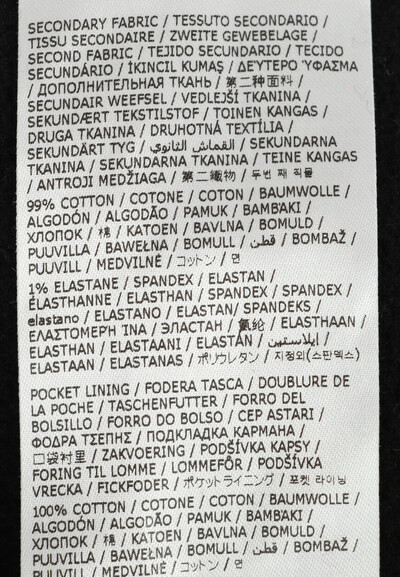 SECONDARY FABRIC / TESSUTO SECONDARIO /
TISSU SECONDAIRE / ZWEITE GEWEBELAGE /
SECOND FABRIC / TEJIDO SECUNDARIO / TECIDO
SECUNDÁRIO / İKİNCİL KUMAŞ / ΔΕΎΤΕΡΟ ΎΦΑΣΜΑ
/ ДОПОЛНИТЕЛЬНАЯ ТКАНЬ / 第二种面料 /
SECUNDAIR WEEFSEL / VEDLEJŠÍ TKANINA /
SEKUNDÆRT TEKSTILSTOF / TOINEN KANGAS /
DRUGA TKANINA / DRUHOTNÁ TEXTÍLIA /
SEKUNDÄRT TYG / القماش الثانوي / SEKUNDARNA
TKANINA / SEKUNDARNA TKANINA / TEINE KANGAS
/ ANTROJI MEDŽIAGA / 第二織物 / 두번 째 직물
99% COTTON / COTONE / COTON / BAUMWOLLE /
ALGODÓN / ALGODÃO / PAMUK / ΒΑΜΒΆΚΙ /
ХЛОПОК / 棉 / KATOEN / BAVLNA / BOMULD /
PUUVILLA / BAWEŁNA / BOMULL / قطن / BOMBAŽ /
PUUVILL / MEDVILNĖ / コットン / 면
1% ELASTANE / SPANDEX / ELASTAN /
ÉLASTHANNE / ELASTHAN / SPANDEX / SPANDEX /
elastano / ELASTANO / ELASTAN/ SPANDEKS /
ΕΛΑΣΤΟΜΕΡΉ ΊΝΑ / ЭЛАСТАН / 氨纶 / ELASTHAAN /
ELASTHAN / ELASTAANI / ELASTÁN / إيلاستين /
ELASTAAN / ELASTANAS / ポリウレタン / 지정외(스판덱스)
POCKET LINING / FODERA TASCA / DOUBLURE DE
LA POCHE / TASCHENFUTTER / FORRO DEL
BOLSILLO / FORRO DO BOLSO / CEP ASTARI /
ΦΟΔΡΑ ΤΣΕΠΗΣ / ПОДКЛАДКА КАРМАНА /
口袋衬里 / ZAKVOERING / PODŠÍVKA KAPSY /
FORING TIL LOMME / LOMMEFÔR / PODŠÍVKA
VRECKA / FICKFODER / ポケットライニング / 포켓 라이닝
100% COTTON / COTONE / COTON / BAUMWOLLE /
ALGODÓN / ALGODÃO / PAMUK / ΒΑΜΒΆΚΙ /
ХЛОПОК / 棉 / KATOEN / BAVLNA / BOMULD /
PUUVILLA / BAWEŁNA / BOMULL / قطن / BOMBAŽ /
PUUVILL / MEDVILNĖ / コットン / 면